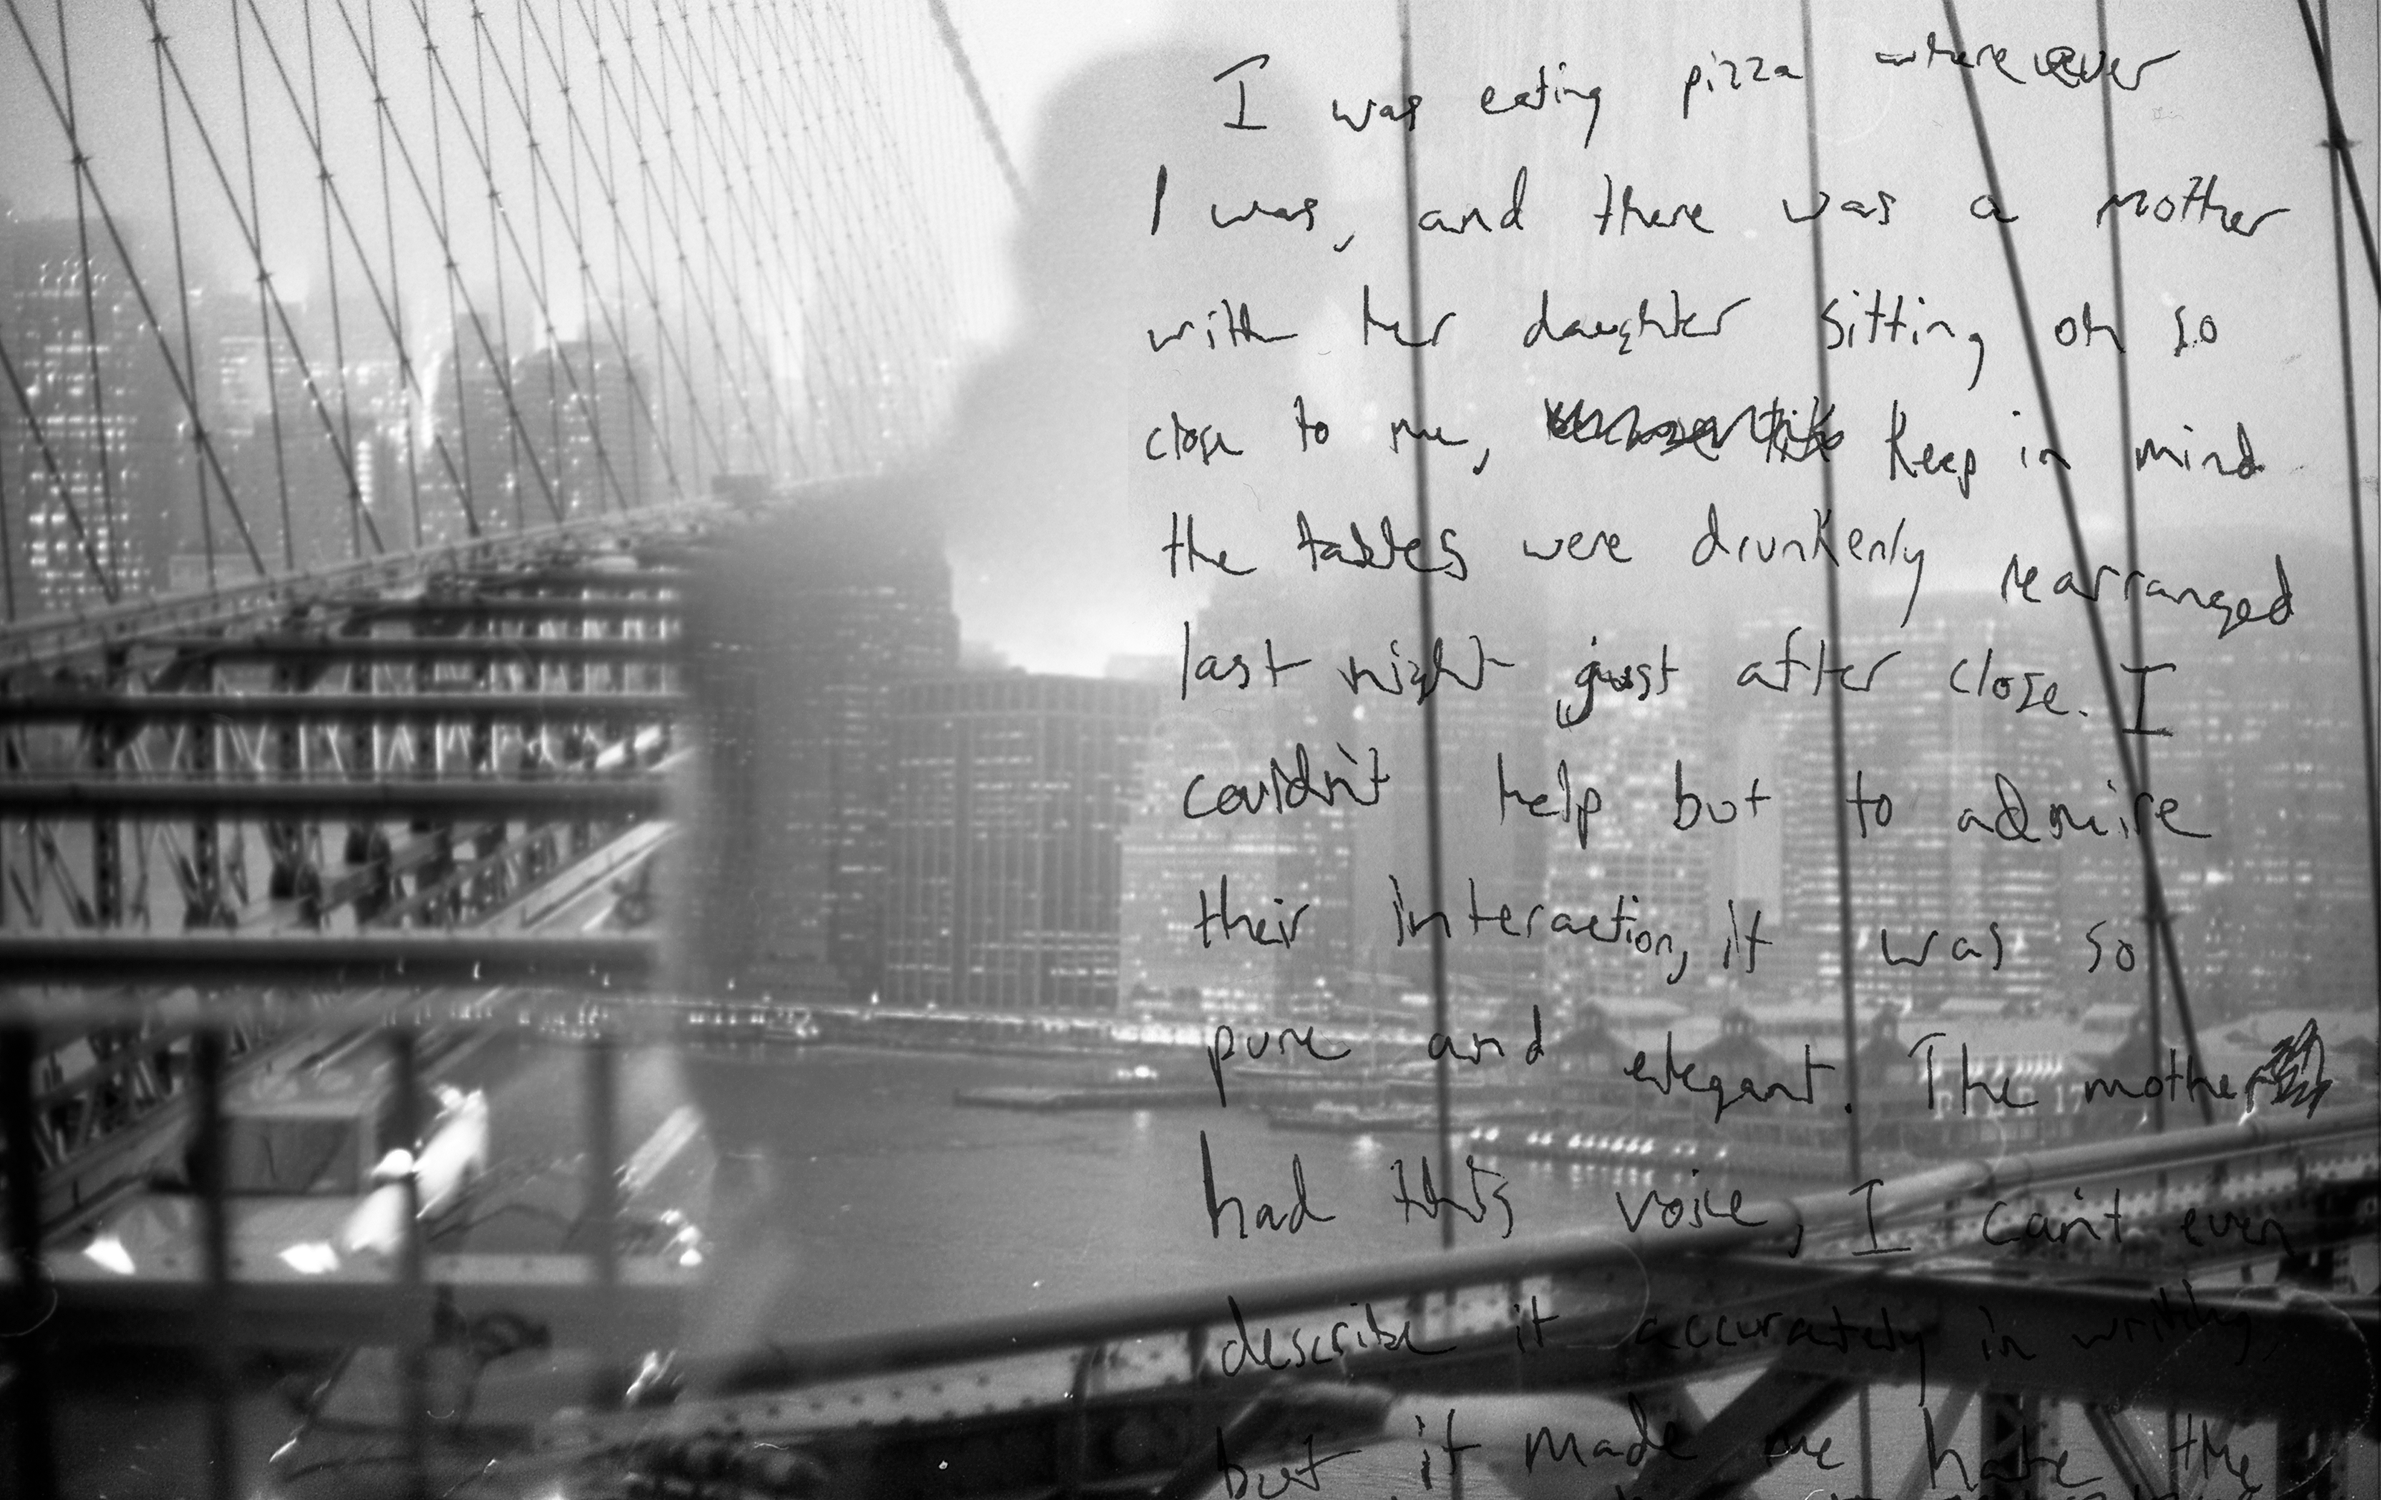 I was eating pizza wherever
I was, and there was a mother
with her daughter sitting oh so
close to me, keep in mind
the tables were drunkenly rearranged
last night just after close. I
couldn't help but to admire
their interaction, it was so
pure and elegant. The mother
had this voice, I can't even
describe it accurately in writing,
but it made me hate the